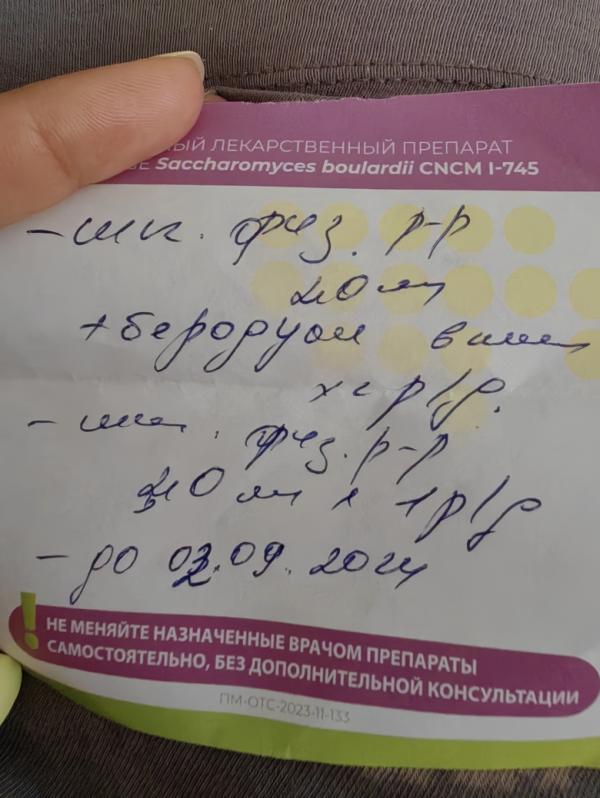 ЫЙ ЛЕКАРСТВЕННЫЙ ПРЕПАРАТ
Saccharomyces boulardii CNCM I-745
- инг. физ. р-р
2,0 мл
+ беродуал
р/д.
- инг. физ. р-р
2,0 мл х 1 р/д
- до 02.09.2024
! НЕ МЕНЯЙТЕ НАЗНАЧЕННЫЕ ВРАЧОМ ПРЕПАРАТЫ
САМОСТОЯТЕЛЬНО, БЕЗ ДОПОЛНИТЕЛЬНОЙ КОНСУЛЬТАЦИИ
ПМ-ОТС-2023-11-133